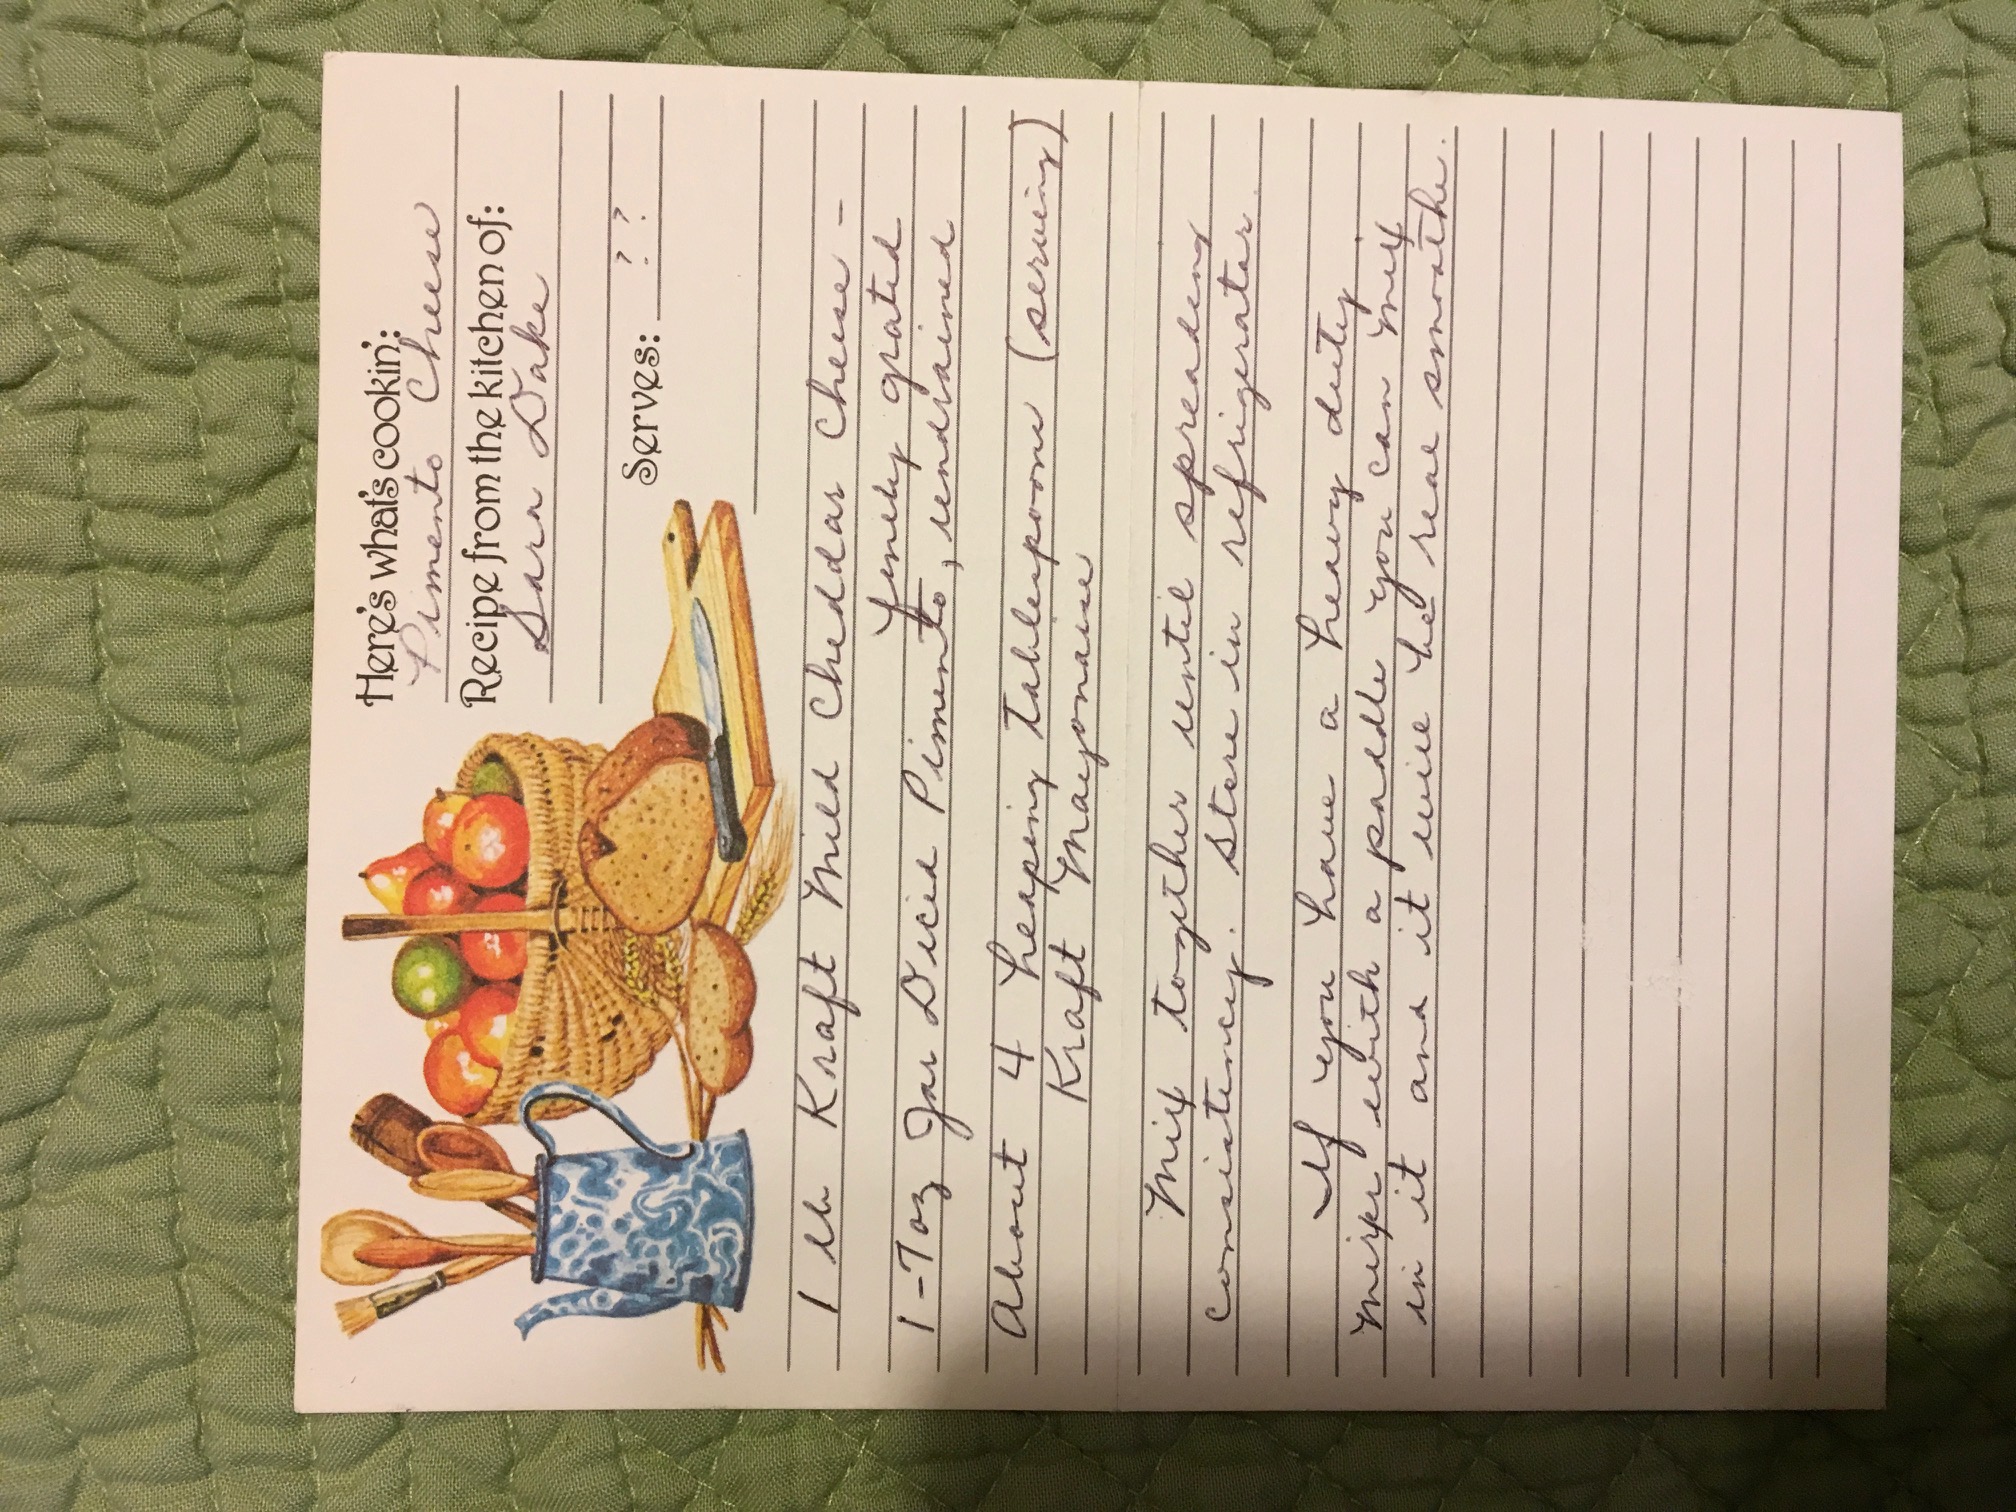 Here's what's cookin':
Pimento Cheese
Recipe from the kitchen of:
Sara Dake
Serves: ? ?
1 lb Kraft Mild Cheddar Cheese -
finely grated
1-7oz Jar Diced Pimento, undrained
About 4 heaping tablespoons (serving)
Kraft Mayonaise
Mix together until spreading
consistency. Store in refrigerator.
If you have a heavy duty
mixer with a paddle you can mix
in it and it will be real smoothe.